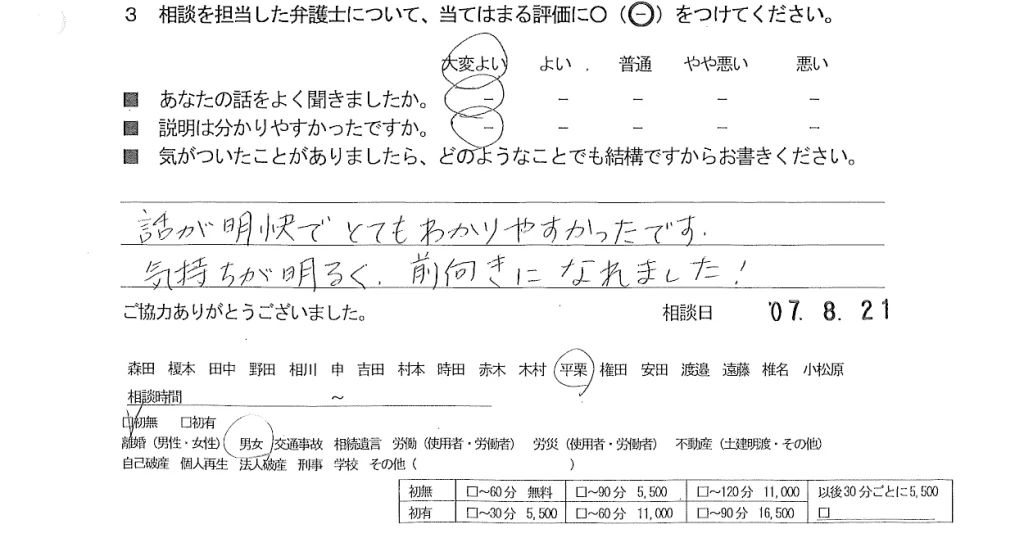 3 相談を担当した弁護士について、当てはまる評価に○（㊀）をつけてください。
大変よい よい 普通 やや悪い 悪い
■ あなたの話をよく聞きましたか。 − − − − −
■ 説明は分かりやすかったですか。 − − − − −
■ 気がついたことがありましたら、どのようなことでも結構ですからお書きください。
話が明快でとてもわかりやすかったです.
気持ちが明るく、前向きになれました!
ご協力ありがとうございました。 相談日 '07. 8. 21
森田 榎本 田中 野田 相川 申 吉田 村本 時田 赤木 木村 平栗 権田 安田 渡邉 遠藤 椎名 小松原
相談時間 ～
□初無 □初有
離婚（男性・女性） 男女 交通事故 相続遺言 労働（使用者・労働者） 労災（使用者・労働者） 不動産（土建明渡・その他）
自己破産 個人再生 法人破産 刑事 学校 その他（ ）
初無 □～60分 無料 □～90分 5,500 □～120分 11,000 以後30分ごとに5,500
初有 □～30分 5,500 □～60分 11,000 □～90分 16,500 □